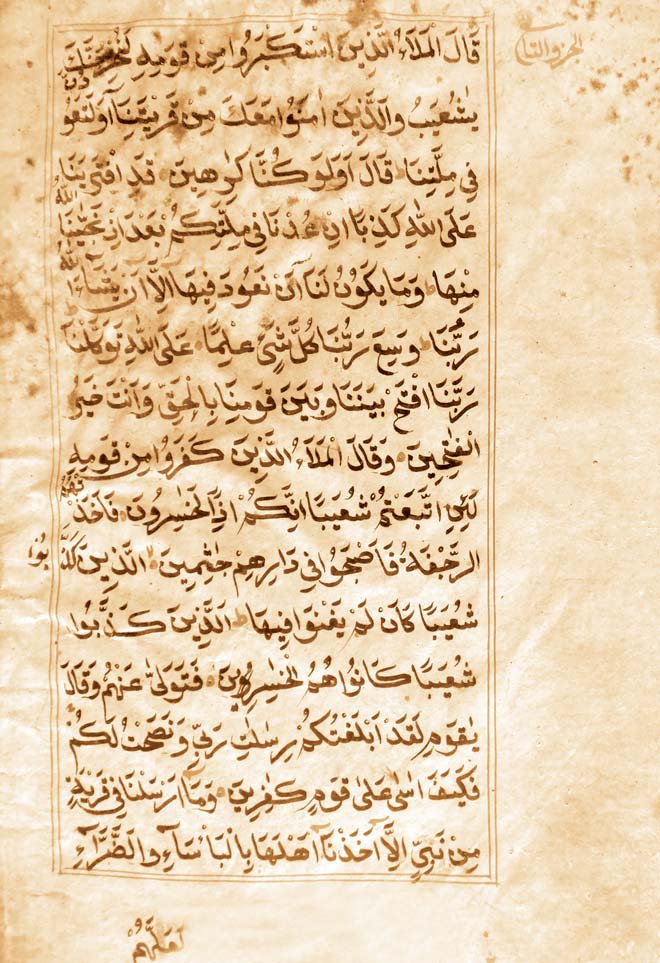 الجزو التاسع
قَالَ الْمَلَاُ الَّذِينَ اسْتَكْبَرُوا مِنْ قَوْمِهِ لَنُخْرِجَنَّكَ
يٰشُعَيْبُ وَالَّذِينَ اٰمَنُوا مَعَكَ مِنْ قَرْيَتِنَا اَوْ لَتَعُودُنَّ
فِي مِلَّتِنَا قَالَ اَوَلَوْ كُنَّا كٰرِهِينَ قَدِ افْتَرَيْنَا
عَلَى اللّٰهِ كَذِبًا اِنْ عُدْنَا فِي مِلَّتِكُمْ بَعْدَ اِذْ نَجّٰينَا اللّٰهُ
مِنْهَا وَمَا يَكُونُ لَنَا اَنْ نَعُودَ فِيهَا اِلَّا اَنْ يَشَاءَ اللّٰهُ
رَبُّنَا وَسِعَ رَبُّنَا كُلَّ شَيْءٍ عِلْمًا عَلَى اللّٰهِ تَوَكَّلْنَا
رَبَّنَا افْتَحْ بَيْنَنَا وَبَيْنَ قَوْمِنَا بِالْحَقِّ وَاَنْتَ خَيْرُ
الْفٰتِحِينَ وَقَالَ الْمَلَاُ الَّذِينَ كَفَرُوا مِنْ قَوْمِهِ
لَئِنِ اتَّبَعْتُمْ شُعَيْبًا اِنَّكُمْ اِذًا لَخٰسِرُونَ فَاَخَذَتْهُمُ
الرَّجْفَةُ فَاَصْبَحُوا فِي دَارِهِمْ جٰثِمِينَ الَّذِينَ كَذَّبُوا
شُعَيْبًا كَاَنْ لَمْ يَغْنَوْا فِيهَا اَلَّذِينَ كَذَّبُوا
شُعَيْبًا كَانُوا هُمُ الْخٰسِرِينَ فَتَوَلّٰى عَنْهُمْ وَقَالَ
يٰقَوْمِ لَقَدْ اَبْلَغْتُكُمْ رِسٰلٰتِ رَبِّي وَنَصَحْتُ لَكُمْ
فَكَيْفَ اٰسٰى عَلٰى قَوْمٍ كٰفِرِينَ وَمَا اَرْسَلْنَا فِي قَرْيَةٍ
مِنْ نَبِيٍّ اِلَّا اَخَذْنَا اَهْلَهَا بِالْبَأْسَاءِ وَالضَّرَّاءِ
لَعَلَّهُمْ